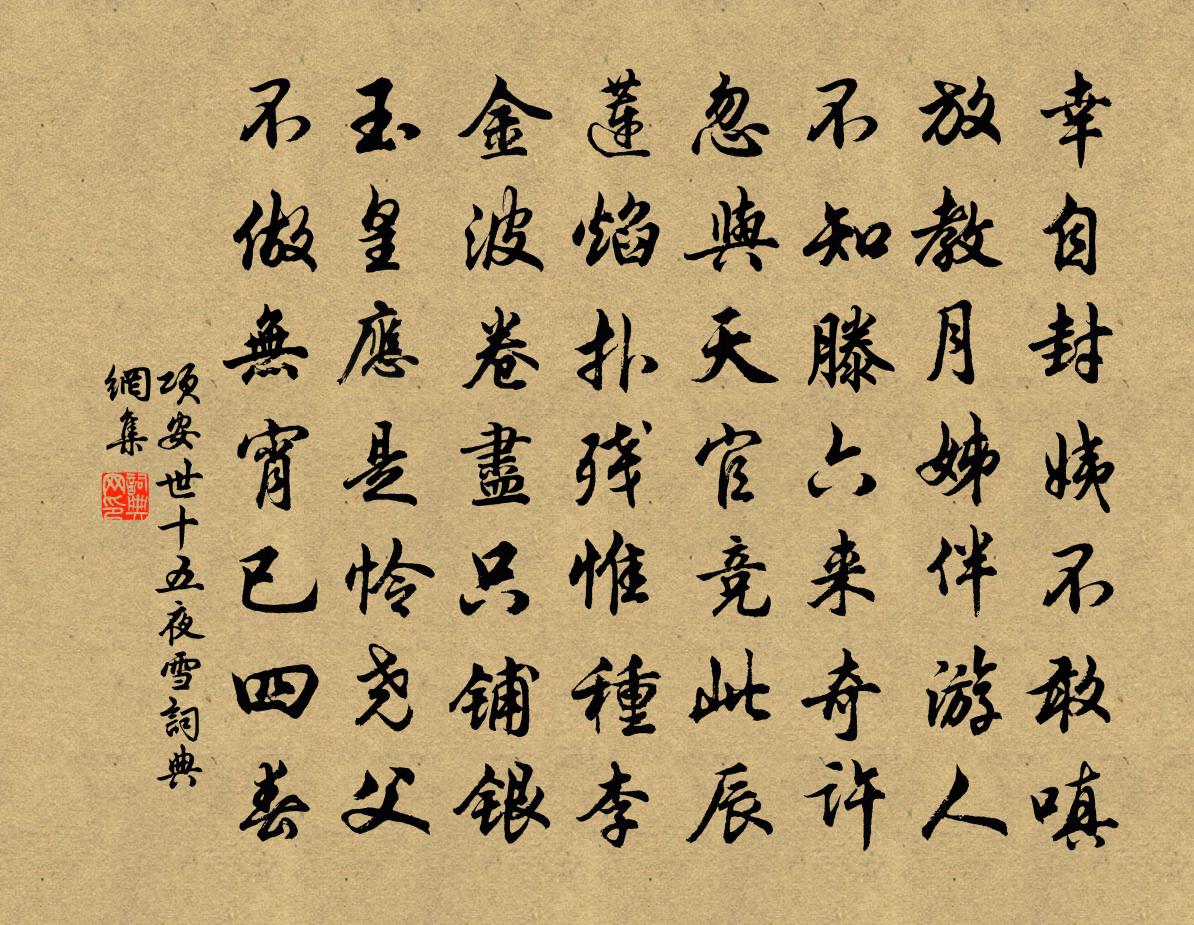 幸自封姨不敢嗔
放教月姊伴游人
不知滕六来奇許
忽與天官竞此辰
蓮焰扑残惟種李
金波卷盡只铺银
玉皇應是怜尧父
不做無宵已四春
项安世十五夜雪詞典
網集
詞典
网印